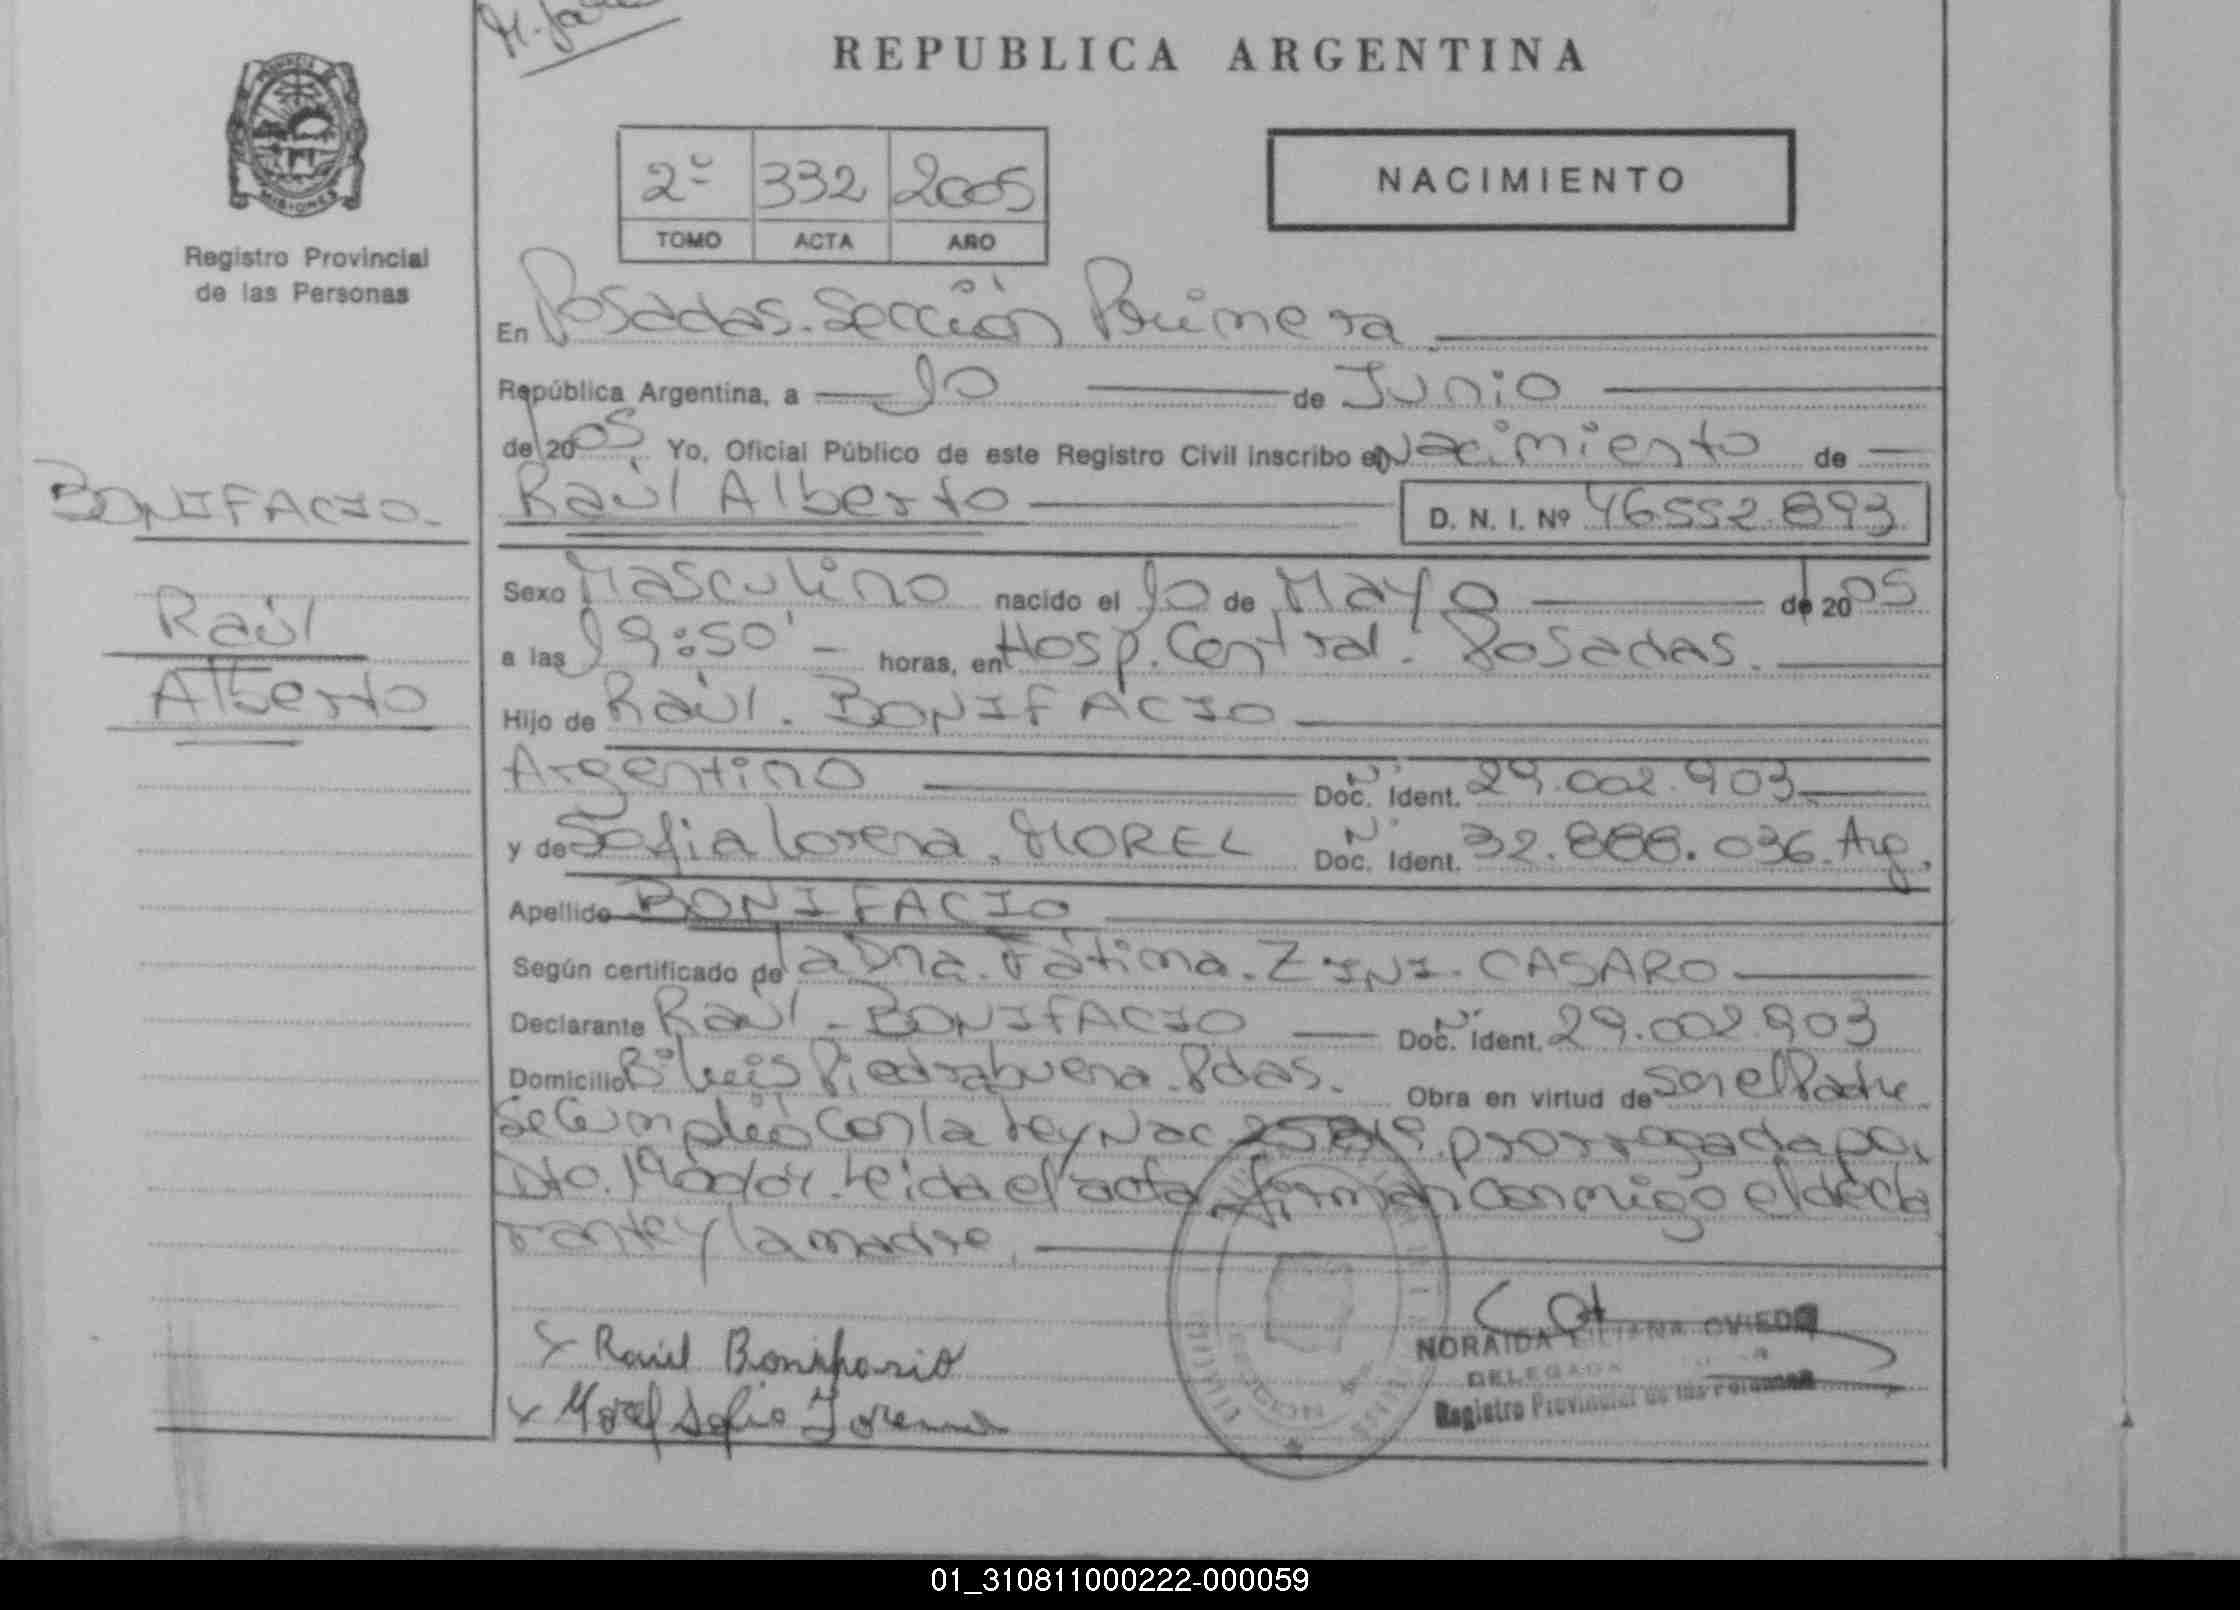 REPUBLICA ARGENTINA
PROVINCIA DE
MISIONES
Registro Provincial
de las Personas
2º 332 2005
TOMO ACTA AÑO
NACIMIENTO
En Posadas. Sección Primera.
República Argentina, a 10 de Junio
de 2005. Yo, Oficial Público de este Registro Civil inscribo el Nacimiento de
BONIFACIO.
Raúl
Alberto
Raúl Alberto D. N. I. Nº 46.552.893
Sexo Masculino nacido el 10 de Mayo de 2005
a las 19:50' horas, en Hosp. Central. Posadas.
Hijo de Raúl. BONIFACIO
Argentino Doc. Nº Ident. 29.002.903
y de Sofia Lorena. MOREL Doc. Nº Ident. 32.888.036. Arg.
Apellido BONIFACIO
Según certificado de la Dra. Fátima. ZINI. CASARO
Declarante Raúl - BONIFACIO Doc. Nº Ident. 29.002.903
Domicilio Bº Luis Piedrabuena. Pdas. Obra en virtud de ser el Padre
Se Cumplió con la Ley Nac. prorrogada por
Dto. Leida el acta firman conmigo el decla
rante y la madre.
x Raúl Bonifasio
x Morel Sofia Lorena
NORAIDA LILIANA OVIEDO
DELEGADA
Registro Provincial de las Personas
01_310811000222-000059